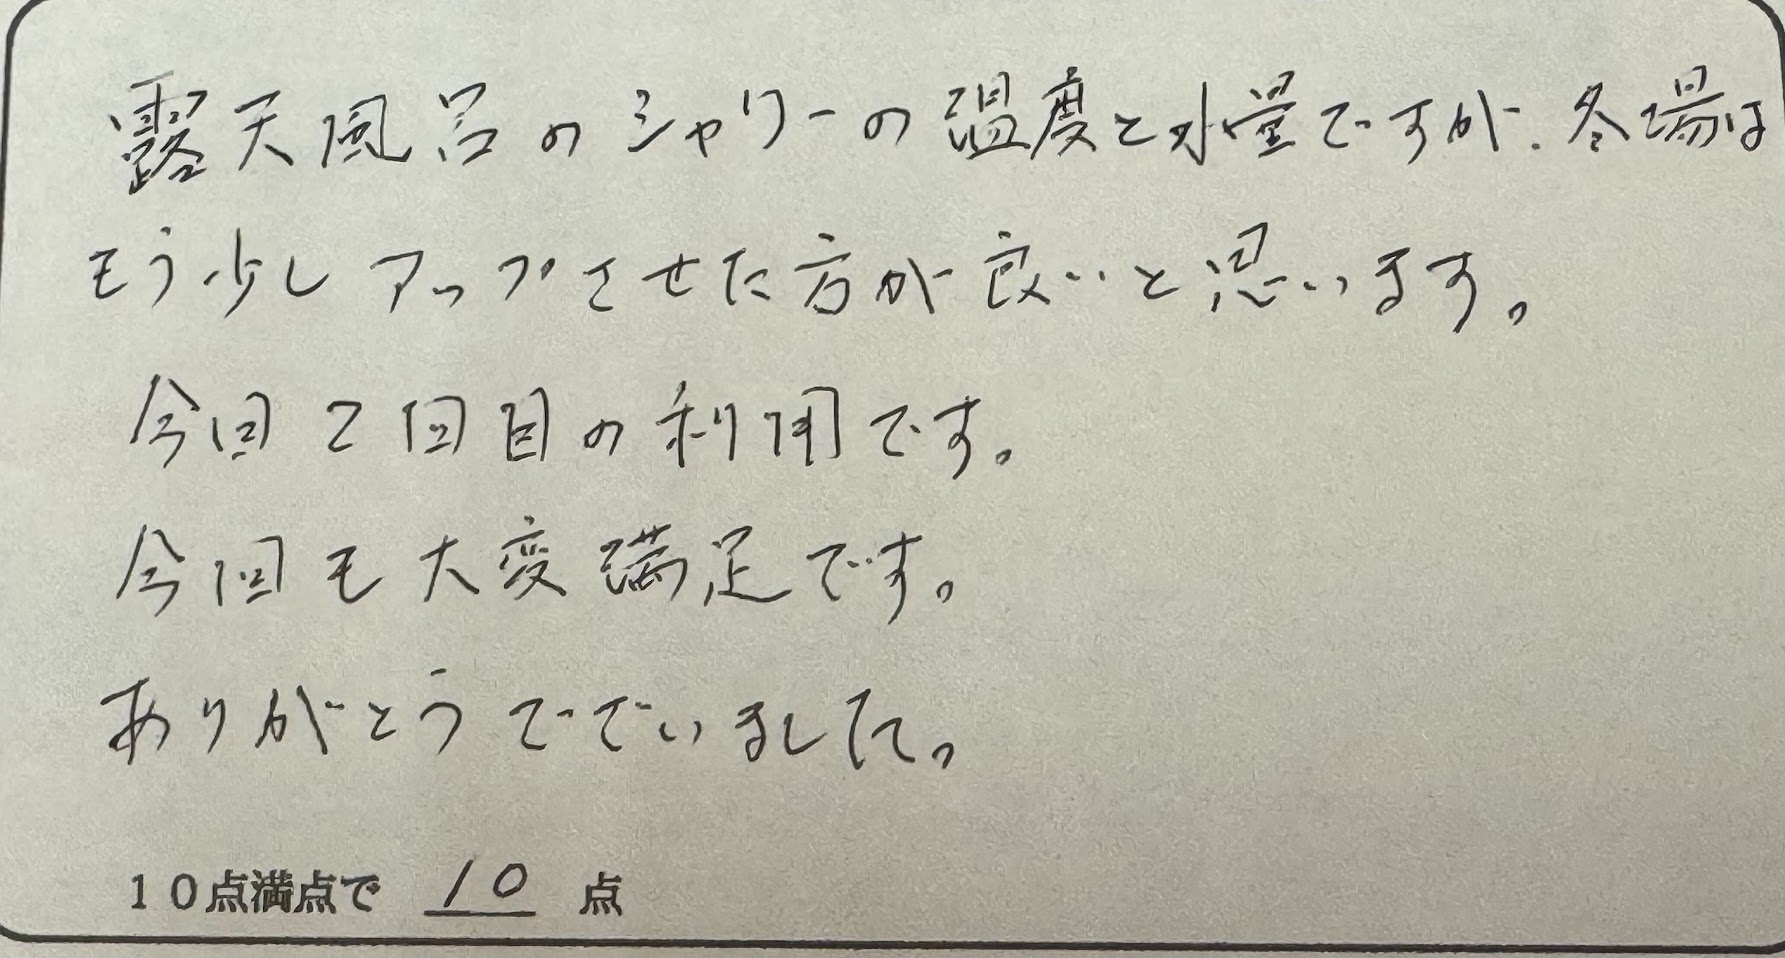 露天風呂のシャワーの温度と水量ですが、冬場は
もう少しアップさせた方が良いと思います。
今回2回目の利用です。
今回も大変満足です。
ありがとうございました。
10点満点で 10 点